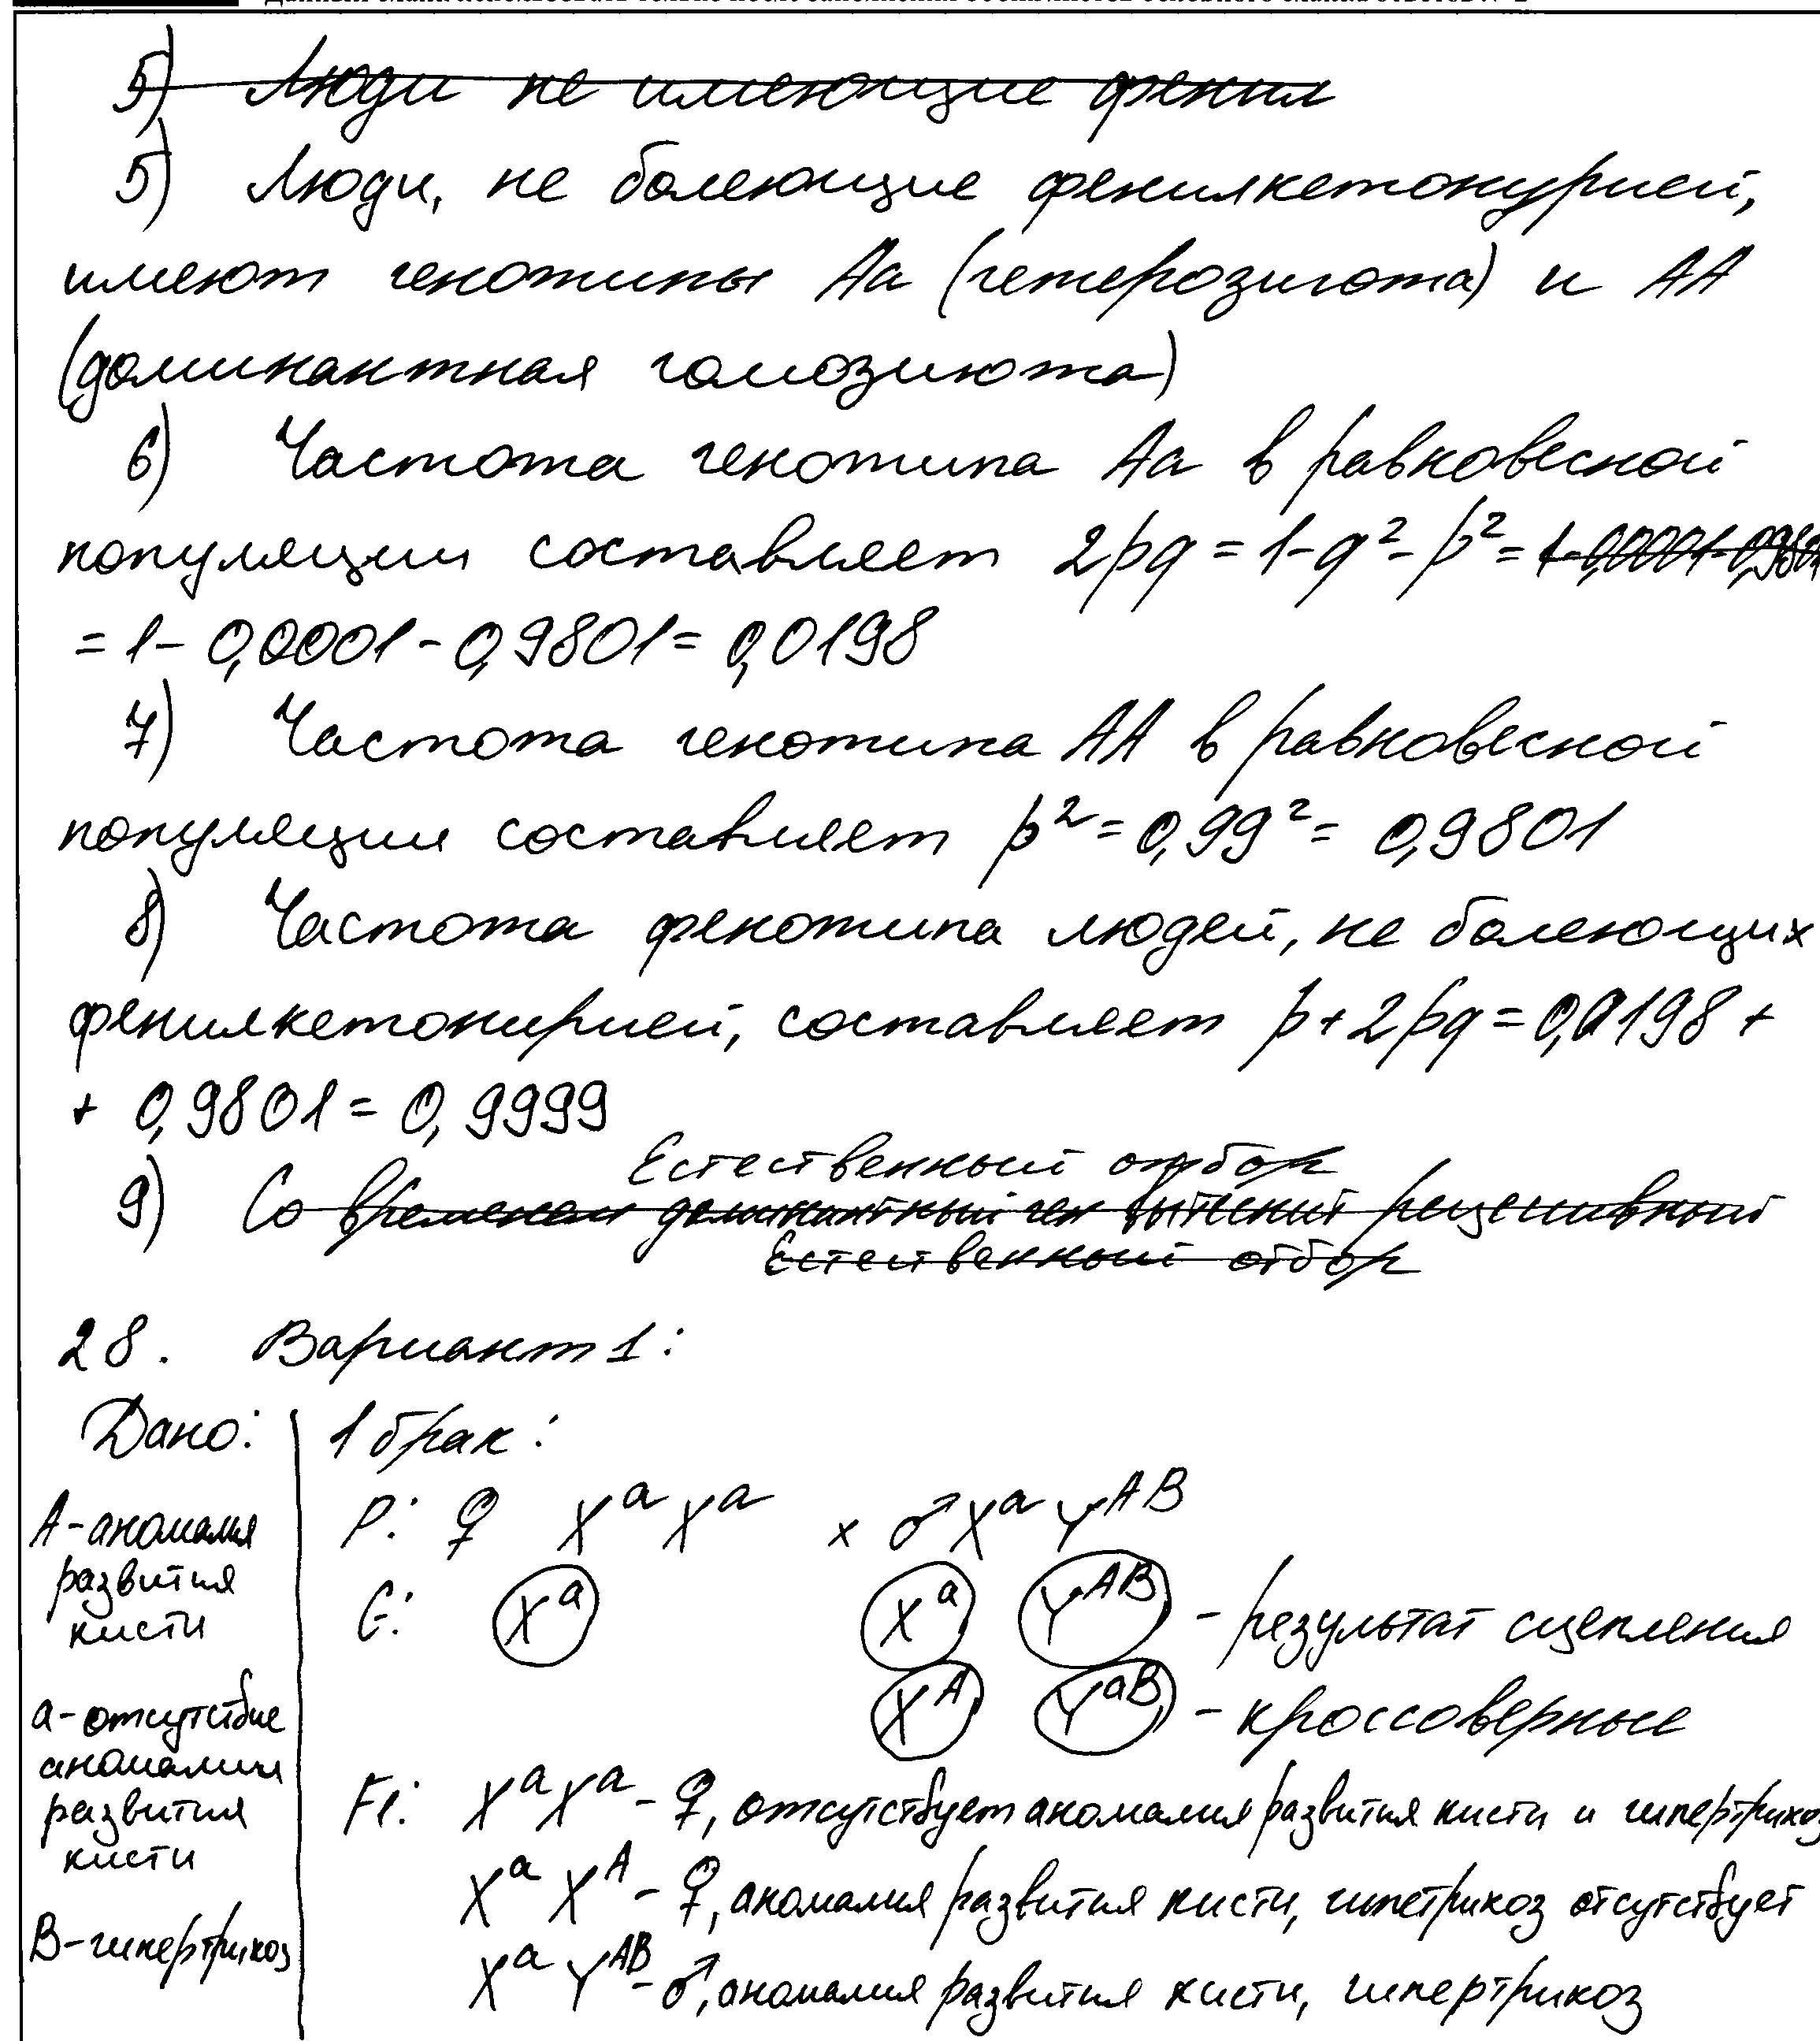 5) Люди не имеющие фенил
5) Люди, не болеющие фенилкетонурией,
имеют генотипы Аа (гетерозигота) и АА
(доминантная гомозигота)
6) Частота генотипа Аа в равновесной
популяции составляет 2pq = 1-q²-p² = 1-0,0001-0,9801
= 1- 0,0001 - 0,9801 = 0,0198
7) Частота генотипа АА в равновесной
популяции составляет p² = 0,99² = 0,9801
8) Частота фенотипа людей, не болеющих
фенилкетонирией, составляет p+2pq = 0,0198 +
+ 0,9801 = 0,9999
Естественный отбор
9) Со временем доминантный ген вытеснит рецессивный
Естественный отбор
28. Вариант 1:
Дано:
А-аномалия
развития
кисти
а-отсутствие
аномалии
развития
кисти
В-гипертрихоз
1 брак:
P: ♀ XᵃXᵃ x ♂ XᵃYᴬᴮ
G: Xᵃ Xᵃ Yᴬᴮ - результат сцепления
Xᴬ Yᵃᴮ - кроссоверные
F1: XᵃXᵃ - ♀, отсутствует аномалия развития кисти и гипертрихоз
XᵃXᴬ - ♀, аномалия развития кисти, гипетрихоз отсутствует
XᵃYᴬᴮ - ♂, аномалия развития кисти, гипертрихоз